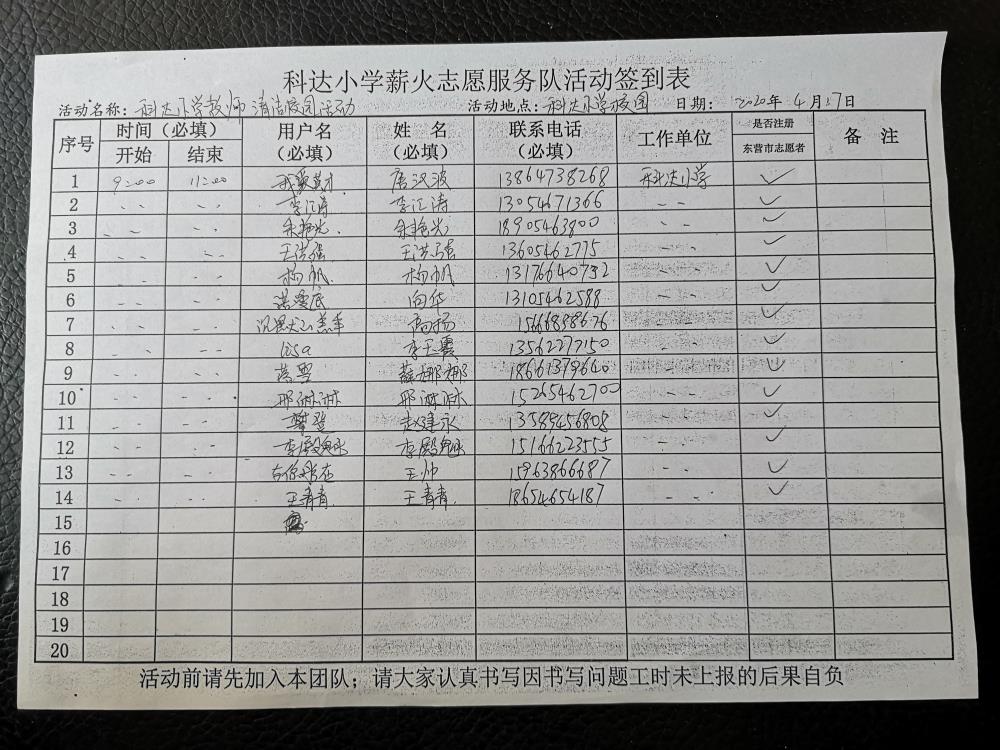 科达小学薪火志愿服务队活动签到表
活动名称：科达小学教师清洁校园活动 活动地点：科达小学校园 日期： 2020年 4月17日
序号 时间（必填） 用户名（必填） 姓 名（必填） 联系电话（必填） 工作单位 是否注册 备 注
开始 结束 东营市志愿者
1 9:00 11:00 唐汉波 13864738268 科达小学 ✓
2 〃 〃 李汇涛 李汇涛 13054671366 〃 ✓
3 〃 〃 18905463800 〃 ✓
4 〃 〃 王洪强 王洪强 13605462775 〃 ✓
5 〃 〃 杨帆 杨帆 13176640732 〃 ✓
6 〃 〃 向华 13105462588 〃 ✓
7 〃 〃 高扬 15668898676 〃 ✓
8 〃 〃 lisa 李玉霞 13562277150 〃 ✓
9 〃 〃 薛娜娜 18661379640 〃 ✓
10 〃 〃 邢琳琳 邢琳琳 15265462700 〃 ✓
11 〃 〃 攀登 赵建永 13589456808 〃 ✓
12 〃 〃 李殿魁 李殿魁 15166223555 〃 ✓
13 〃 〃 有你我在 王帅 15963866687 〃 ✓
14 〃 〃 王青青 王青青 18654654187 〃 ✓
15
16
17
18
19
20
活动前请先加入本团队；请大家认真书写因书写问题工时未上报的后果自负